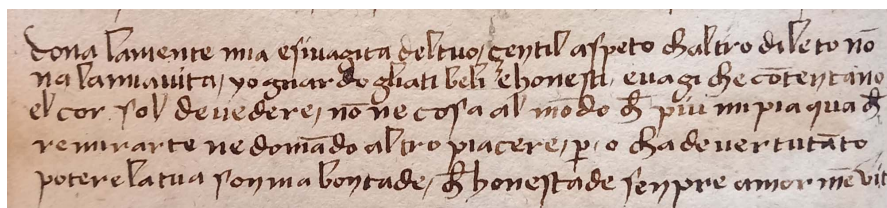 dona lamente mia esi vagita del tuo / gentil aspeto ch altro dileto nō
na lamia vita / yo guardo gliati beli e honesti / e vagi che cōtentano
el cor sol de vedere / nō ne cosa al mōdo ch̄ piu mi piaqua ch̄
remirarte ne domādo altro piacere / ꝑ o cha de vertu tāto
potere la tua somma bontade / ch̄ honestade senpre amor mē vit